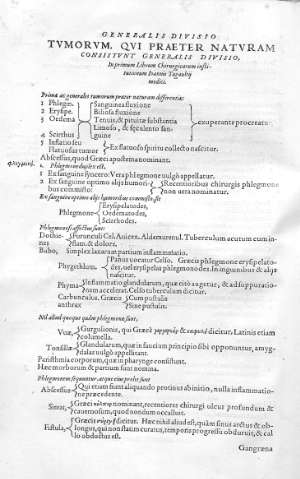 GENERALIS DIVISIO
TVMORVM, QVI PRAETER NATVRAM
CONSISTVNT GENERALIS DIVISIO,
In primum Librum Chirurgicarum insti-
tutionum Ioannis Tagaultij
medici.
Prima ac generalis tumorum præter naturam differentia:
1 Phlegm. Sanguinea fluxione
2 Erysipe. Biliosa fluxione
3 Oedema Tenuis, & pituitæ substantia
exuperante procreatur
4 Scirrhus Limoso, & feculento san-
guine
5 Inflatio seu
Flatuosus tumor Ex flatuoso spiritu collecto nascitur.
Abscessus, quod Græci apostema nominant.
Phlegmone duplex est.
1 Ex sanguine syncero: Vera phlegmone vulgò appellatur.
2 Ex sanguine optimo alijs humori-
bus commisto: Recentioribus chirurgis phlegmone
non vera nominatur.
Ex sanguine optimo alijs humoribus commisto est
Phlegmone Erysipelatodes,
Oedematodes,
Scirrhodes.
Phlegmonis affectus sunt:
Dothie- Furunculi Cel. Tuberculum acutum cum in-
flam. & dolore.
Bubo, Simplex laxarum partium inflammatio.
Phygethlon. Panus vocatur Celso. Græcis phlegmone erysipelato-
des, vel erysipelas phlegmonodes. In inguinibus & alijs
nascitur.
Phyma Inflammatio glandularum, quæ citò augetur, & ad suppuratio-
tionem accelerat. Celso tuberculum dicitur.
Carbunculus, Græcis
anthrax Cum pustula
Sine pustula.
Nil aliud quoque quàm phlegmone, sunt:
Vuæ, Gurgulionis, qui Græcè dicitur. Latinis etiam
columella.
Tonsillæ Glandularum, quæ in faucium principio sibi opponuntur, amyg-
dalæ vulgò appellantur.
Paristhmia corporum, quæ in pharynge consistunt.
Hæ morborum & partium sunt nomina.
Phlegmonem sequuntur, atque eius proles sunt
Abscessus Qui etiam sunt aliquando protinus ab initio, nulla inflammatio-
ne præcedente.
Sinus, Græci nominant, recentiores chirurgi ulcus profundum &
cauernosum, quod nondum occalluit.
Fistula, Græcis dicitur. Hæc nihil aliud est, quàm sinus arctus & ob-
longus, qui non statim curatus, temporis progressu obduruit, & cal-
lo obductus est.
Gangræna